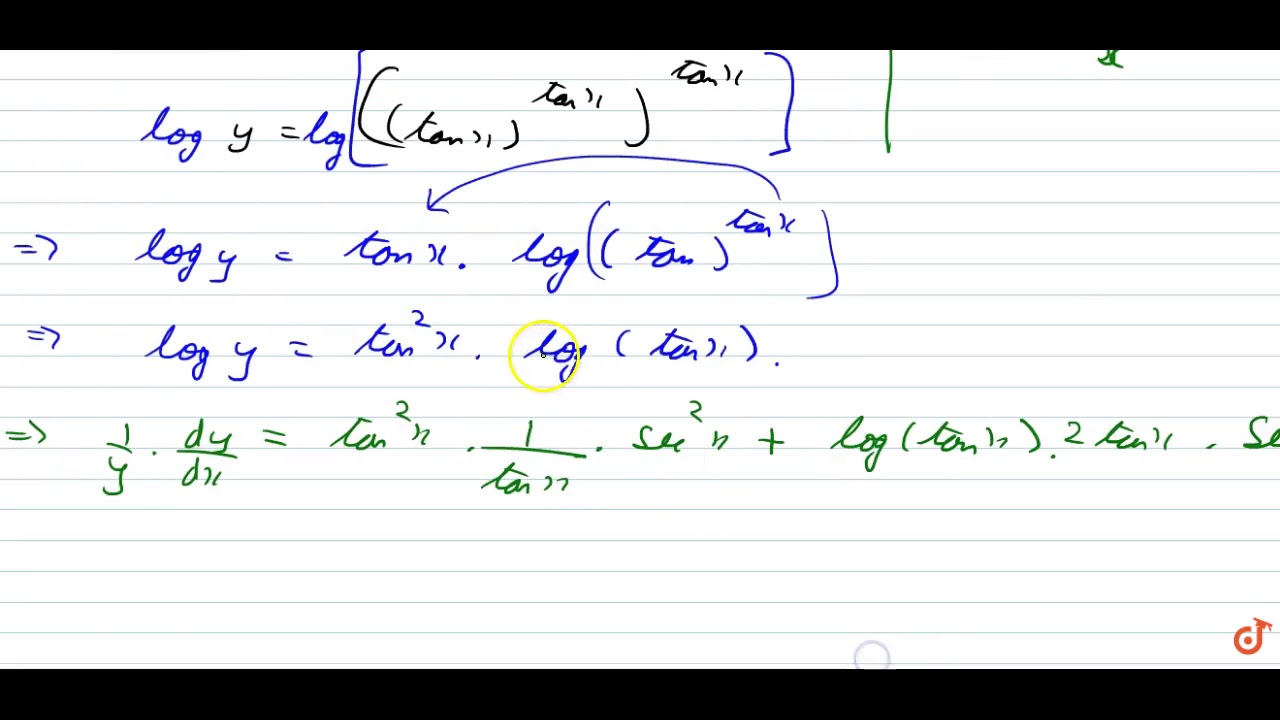 x
log y = log[((tan x)^tan x)^tan x]
=> log y = tan x . log((tan)^tan x)
=> log y = tan²x . log (tan x).
=> 1/y . dy/dx = tan²x . 1/tan x . sec²x + log(tan x). 2 tan x . Se